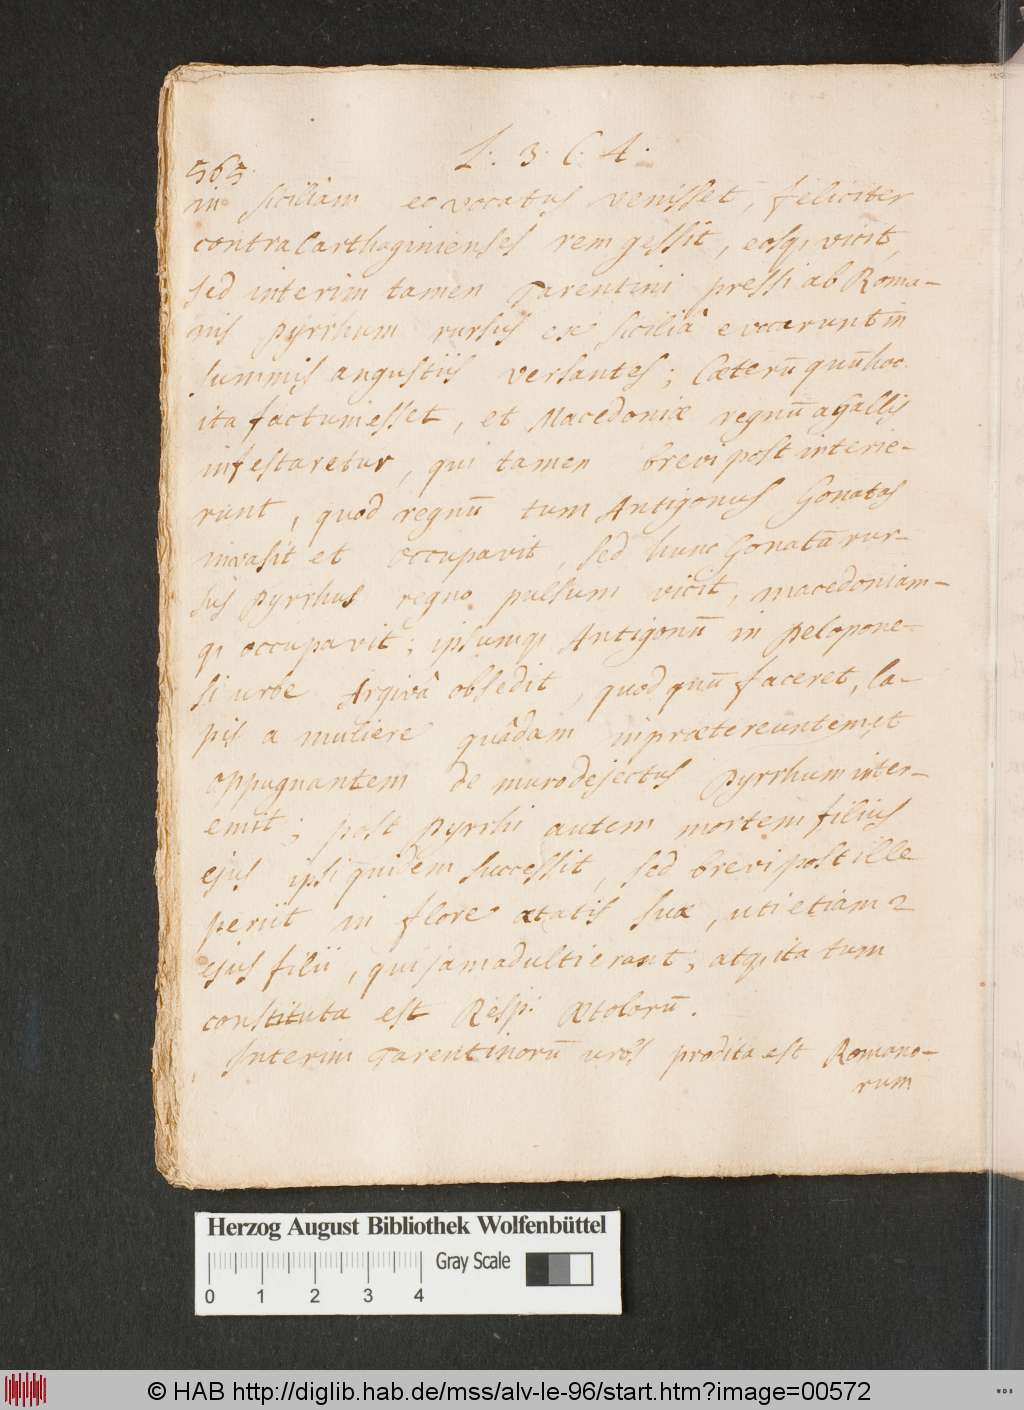 565. L. 3. C. 4.
in Siciliam eo vocatus venisset, feliciter
contra Carthaginienses rem gessit, eosq; vicit,
sed interim tamen Tarentini pressi ab Roma-
nis Pyrrhum rursus ex Siciliâ evocarunt in
summis angustiis versantes; Cæterũ quũ hoc
ita factum esset, et Macedoniæ regnũ a Gallis
infestaretur, qui tamen brevi post interie-
runt, quod regnũ tum Antigonus Gonatas
invasit et occupavit, sed hunc Gonatã rur-
sus Pyrrhus regno pulsum vicit, Macedoniam-
q; occupavit; ipsumq; Antigonũ in Pelopone-
si urbe Argivâ obsedit, quod quũ faceret, la-
pis a muliere quâdam in prætereuntem et
oppugnantem de muro dejectus Pyrrhum inter-
emit; post Pyrrhi autem mortem filius
ejus ipsi quidem successit, sed brevi post ille
periit in flore ætatis suæ, uti etiam 2
ejus filii, qui jam adulti erant; atq; ita tum
constituta est Resp: Ætolorũ.
Interim Tarentinorũ urbs prodita est Romano-
rum
Herzog August Bibliothek Wolfenbüttel
Gray Scale
0 1 2 3 4
© HAB http://diglib.hab.de/mss/alv-le-96/start.htm?image=00572